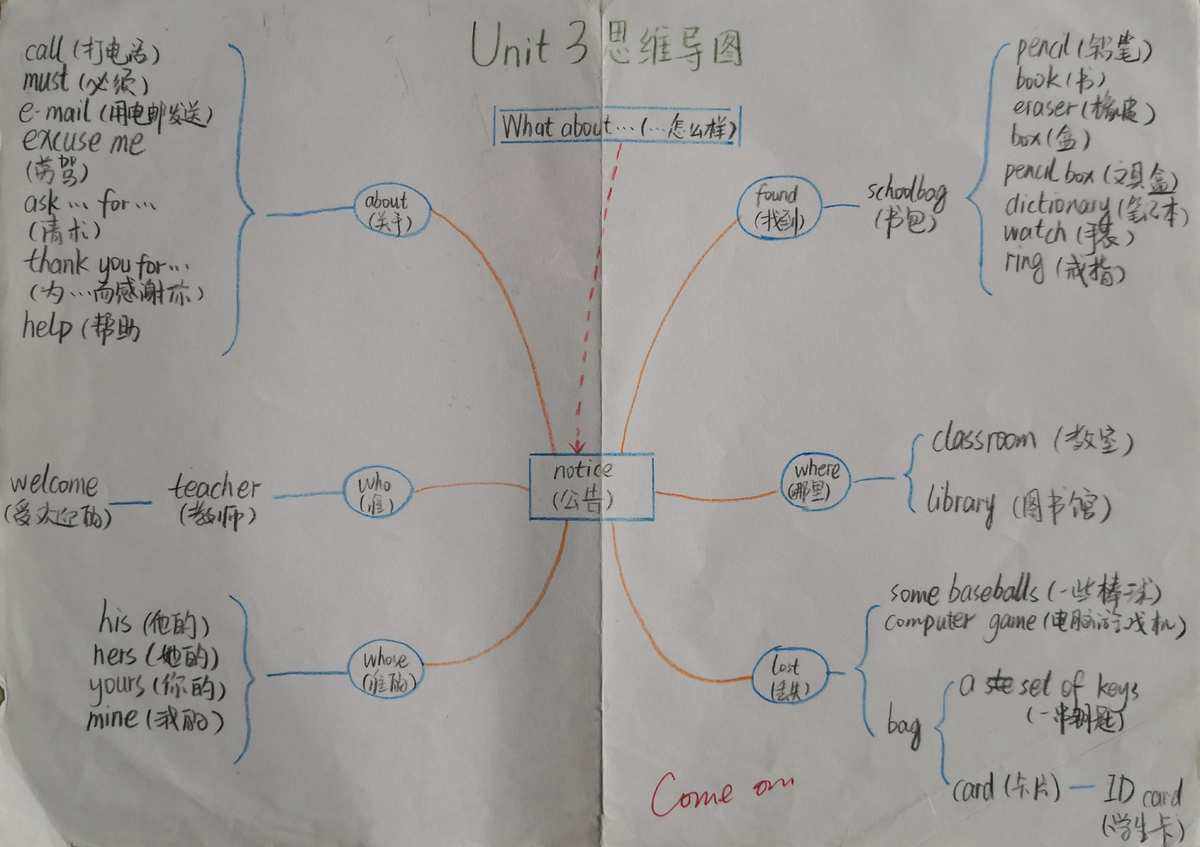 Unit 3 思维导图
What about…(…怎么样)
call (打电话)
must (必须)
e-mail (用电邮发送)
excuse me
(劳驾)
ask … for …
(请求)
thank you for…
(为…而感谢你)
help (帮助
about
(关于)
found
(找到)
schoolbag
(书包)
pencil (铅笔)
book (书)
eraser (橡皮)
box (盒)
pencil box (文具盒)
dictionary (笔记本)
watch (手表)
ring (戒指)
notice
(公告)
who
(谁)
teacher
(教师)
welcome
(受欢迎的)
where
(哪里)
classroom (教室)
library (图书馆)
whose
(谁的)
his (他的)
hers (她的)
yours (你的)
mine (我的)
lost
(丢失)
some baseballs (一些棒球)
computer game (电脑游戏机)
bag
a set of keys
(一串钥匙)
card (卡片)
ID card
(学生卡)
Come on